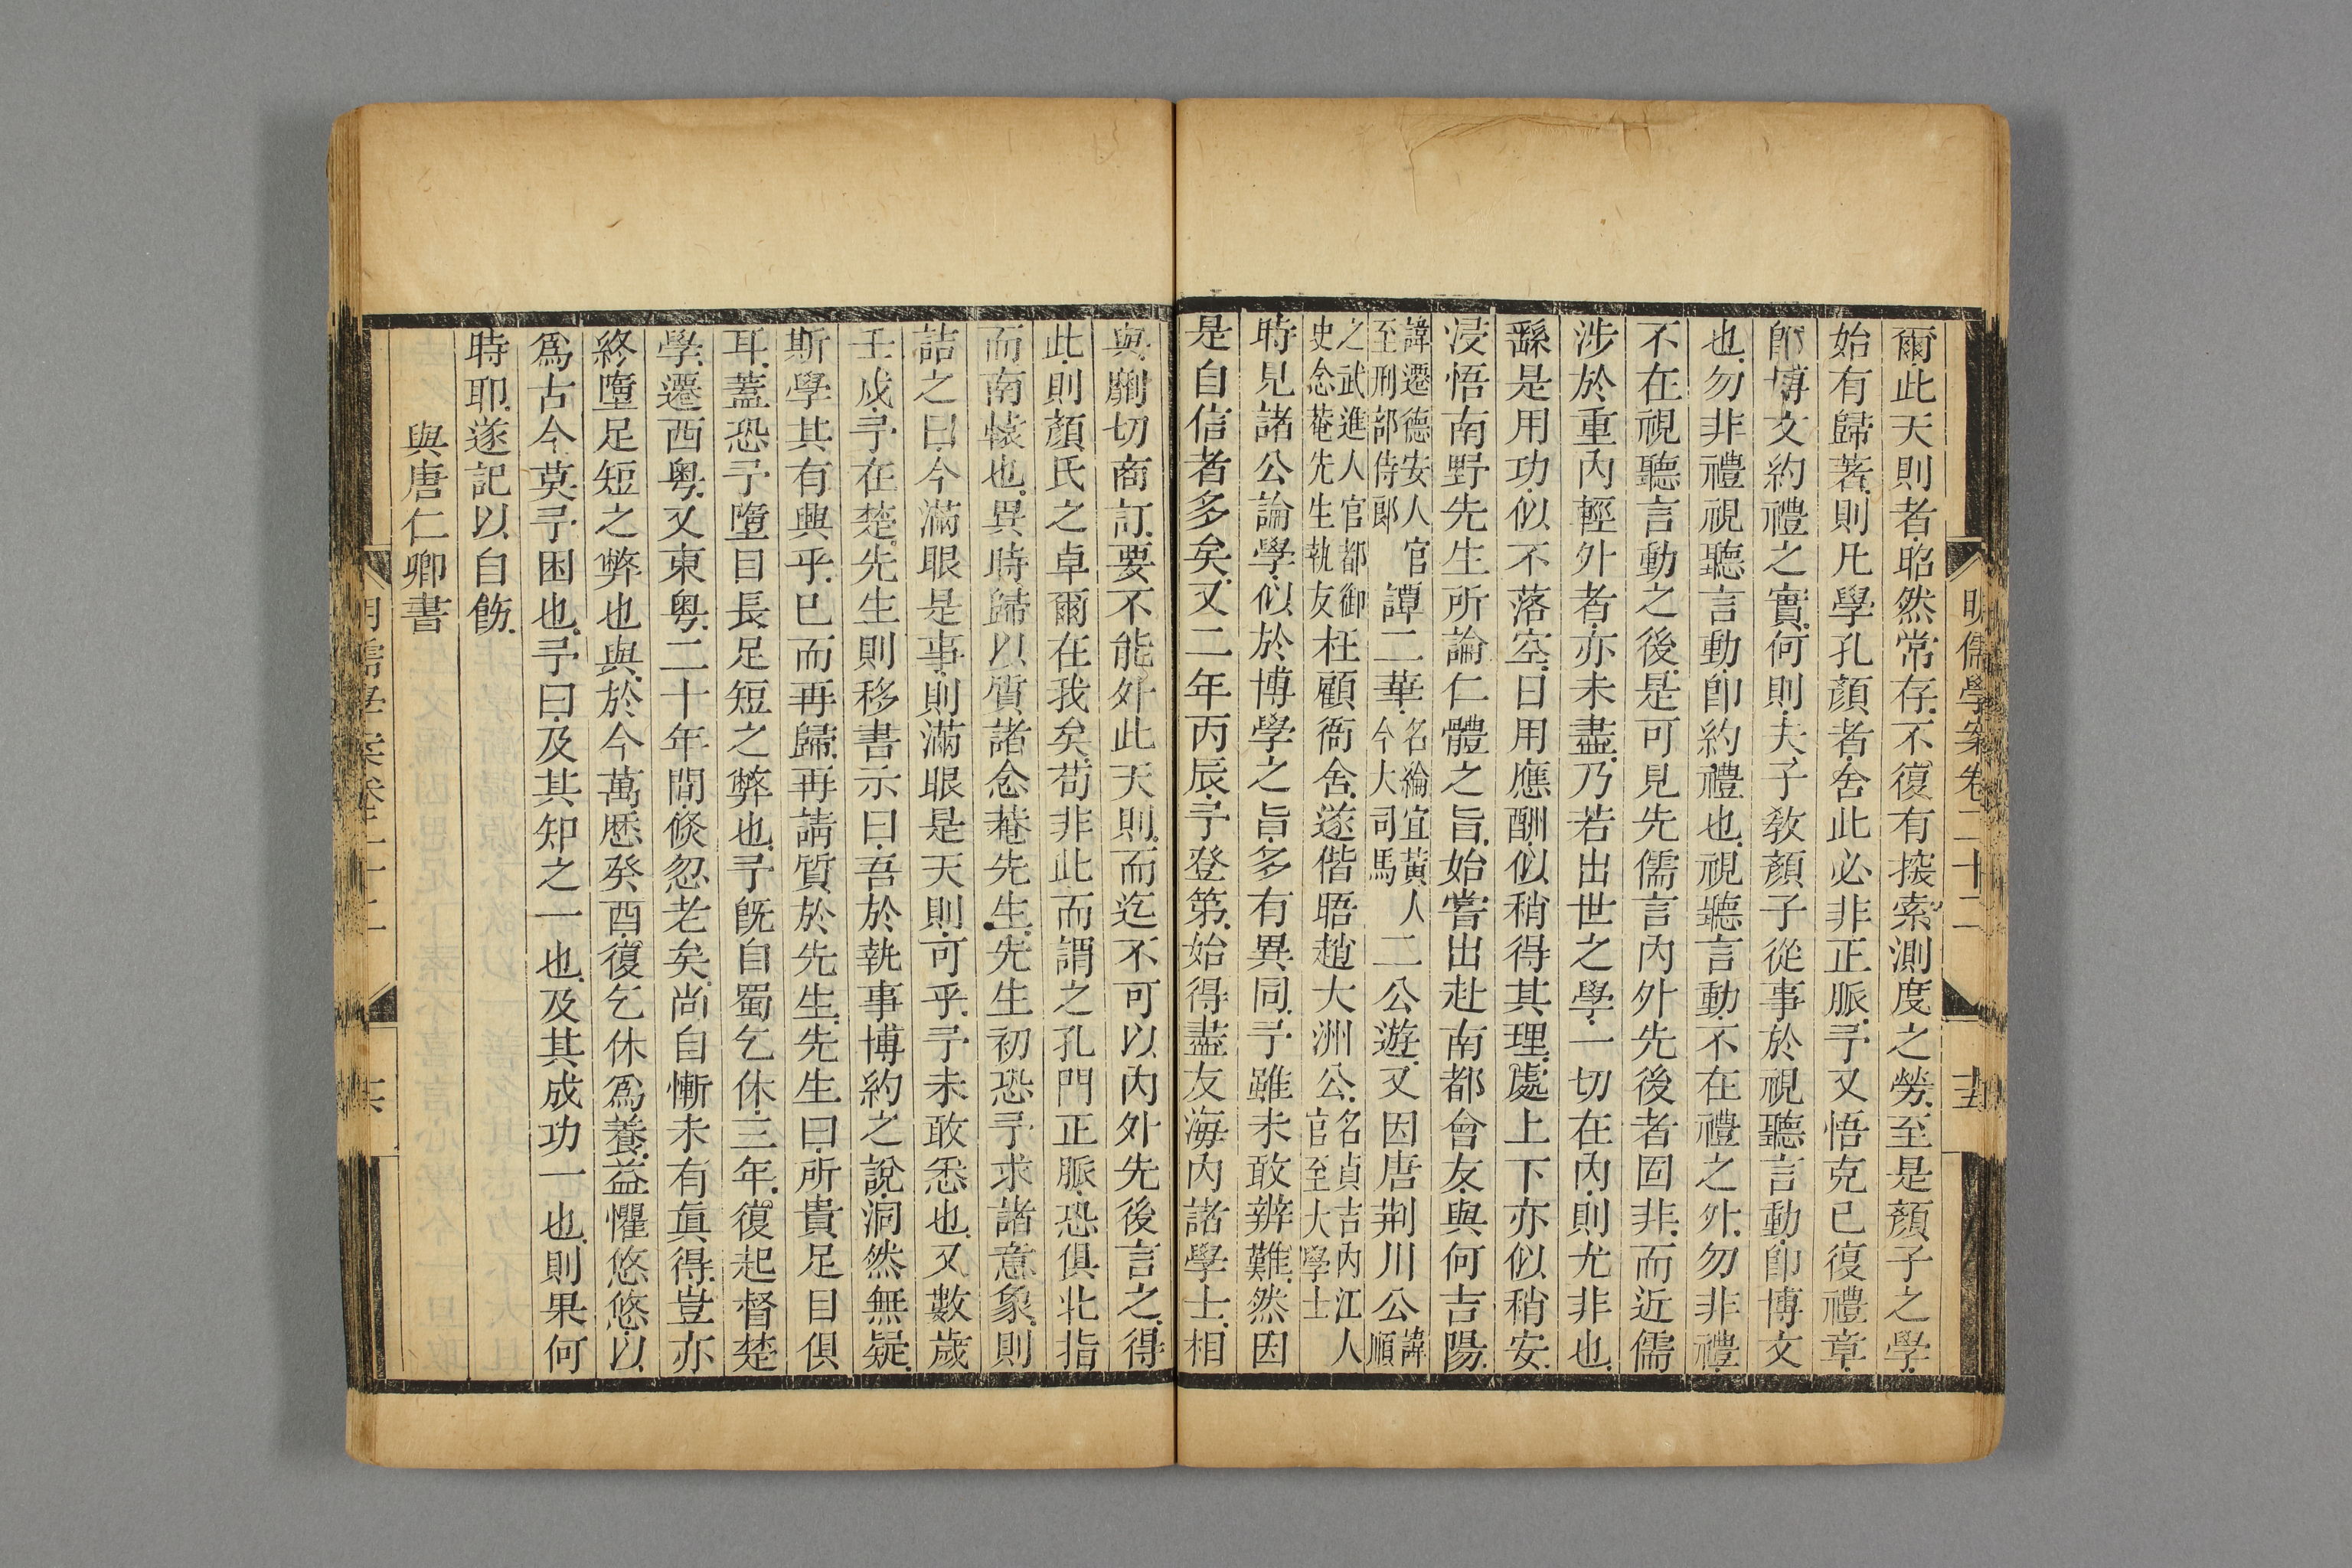 明儒學案卷二十二
十五
爾此天則者昭然常存不復有揬索測度之勞至是顏子之學
始有歸著則凡學孔顏者舍此必非正脈予又悟克己復禮章
卽博文約禮之實何則夫子敎顏子從事於視聽言動卽博文
也勿非禮視聽言動卽約禮也視聽言動不在禮之外勿非禮
不在視聽言動之後是可見先儒言內外先後者固非而近儒
涉於重內輕外者亦未盡乃若出世之學一切在內則尤非也
繇是用功似不落空日用應酬似稍得其理處上下亦似稍安
浸悟南野先生所論仁體之旨始嘗出赴南都會友與何吉陽
諱遷德安人官至刑部侍郎譚二華名綸宜黃人今大司馬二公遊又因唐荆川公諱順
之武進人官都御史念菴先生執友枉顧衙舍遂偕晤趙大洲公名貞吉內江人官至大學士
時見諸公論學似於博學之旨多有異同予雖未敢辨難然因
是自信者多矣又二年丙辰予登第始得盡友海內諸學士相
與劘切商訂要不能外此天則而迄不可以內外先後言之得
此則顏氏之卓爾在我矣苟非此而謂之孔門正脈恐俱北指
而南轅也異時歸以質諸念菴先生先生初恐予求諸意象則
詰之曰今滿眼是事則滿眼是天則可乎予未敢悉也又數歲
壬戌予在楚先生則移書示曰吾於執事博約之說洞然無疑
斯學其有興乎已而再歸再請質於先生先生曰所貴足目俱
耳蓋恐予墮目長足短之弊也予旣自蜀乞休三年復起督楚
學遷西粤又東粤二十年間倐忽老矣尚自慚未有眞得豈亦
終墮足短之弊也與於今萬歷癸酉復乞休爲養益懼悠悠以
爲古今莫予困也予曰及其知之一也及其成功一也則果何
時耶遂記以自飭
與唐仁卿書
明儒學案卷二十二
十六